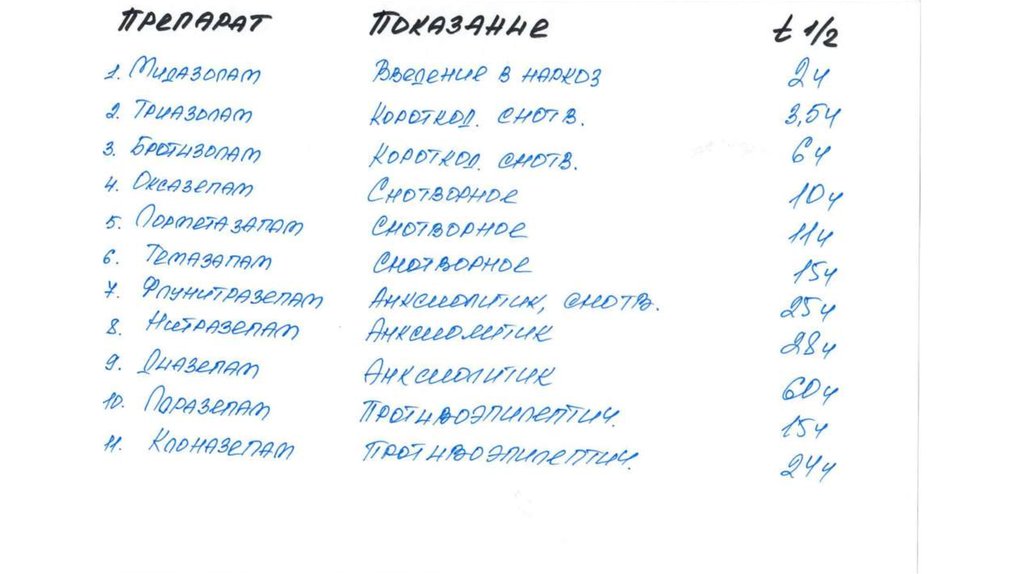 ПРЕПАРАТ ПОКАЗАНИЕ t 1/2
1. Мидазолам Введение в наркоз 2ч
2. Триазолам Короткод. снотв. 3,5ч
3. Бротизолам Короткод. снотв. 6ч
4. Оксазепам Снотворное 10ч
5. Лорметазапам Снотворное 11ч
6. Темазапам Снотворное 15ч
7. Флунитразепам Анксиолитик, снотв. 25ч
8. Нитразепам Анксиолитик 28ч
9. Диазепам Анксиолитик 60ч
10. Лоразепам Противоэпилептич. 15ч
11. Клоназепам Противоэпилептич. 24ч